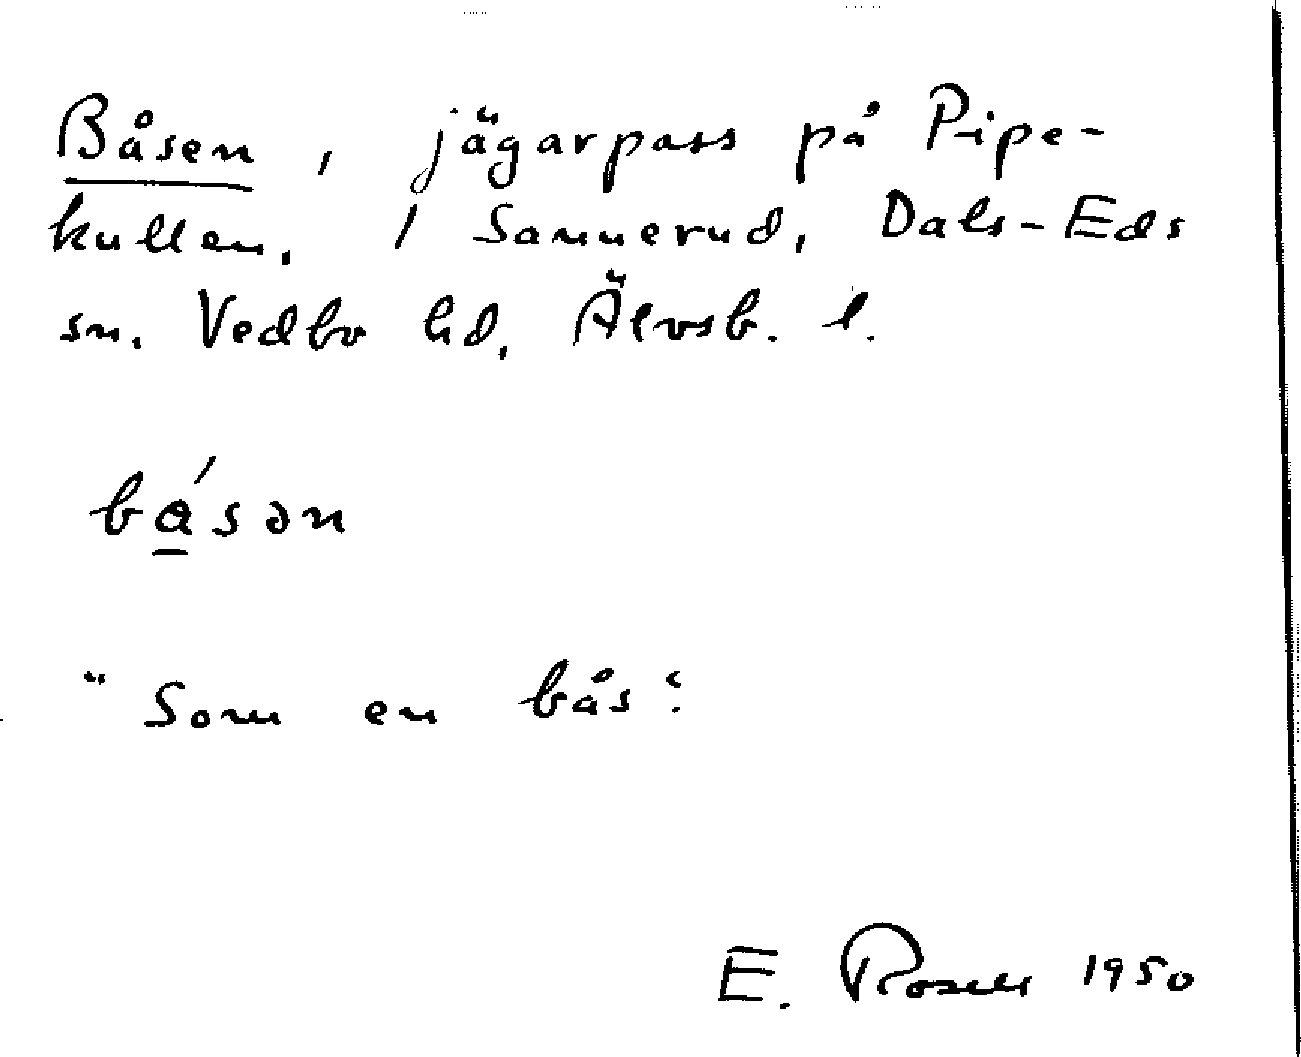 Båsen, jägarpass på Pipe-
kullen, / Sannerud, Dals-Eds
sn. Vedbo hd, Älvsb. l.
bá̱sən
"Som en bås".
E. Rosell 1950